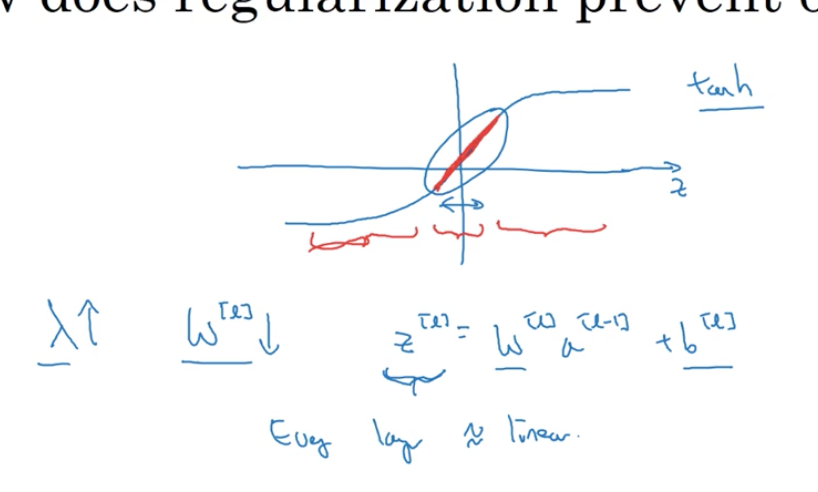 does regularization prevent
tanh
z
λ↑ W^[l]↓ z^[l] = W^[l] a^[l-1] + b^[l]
Every layer ≈ linear.